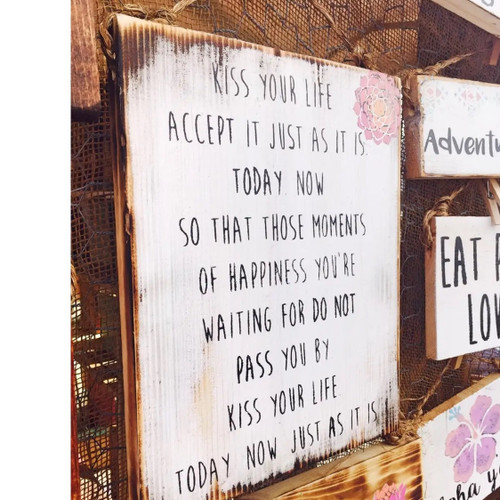 KISS YOUR LIFE
ACCEPT IT JUST AS IT IS.
TODAY. NOW
SO THAT THOSE MOMENTS
OF HAPPINESS YOU'RE
WAITING FOR DO NOT
PASS YOU BY
KISS YOUR LIFE.
TODAY NOW JUST AS IT IS
Adventu
EAT
LOV